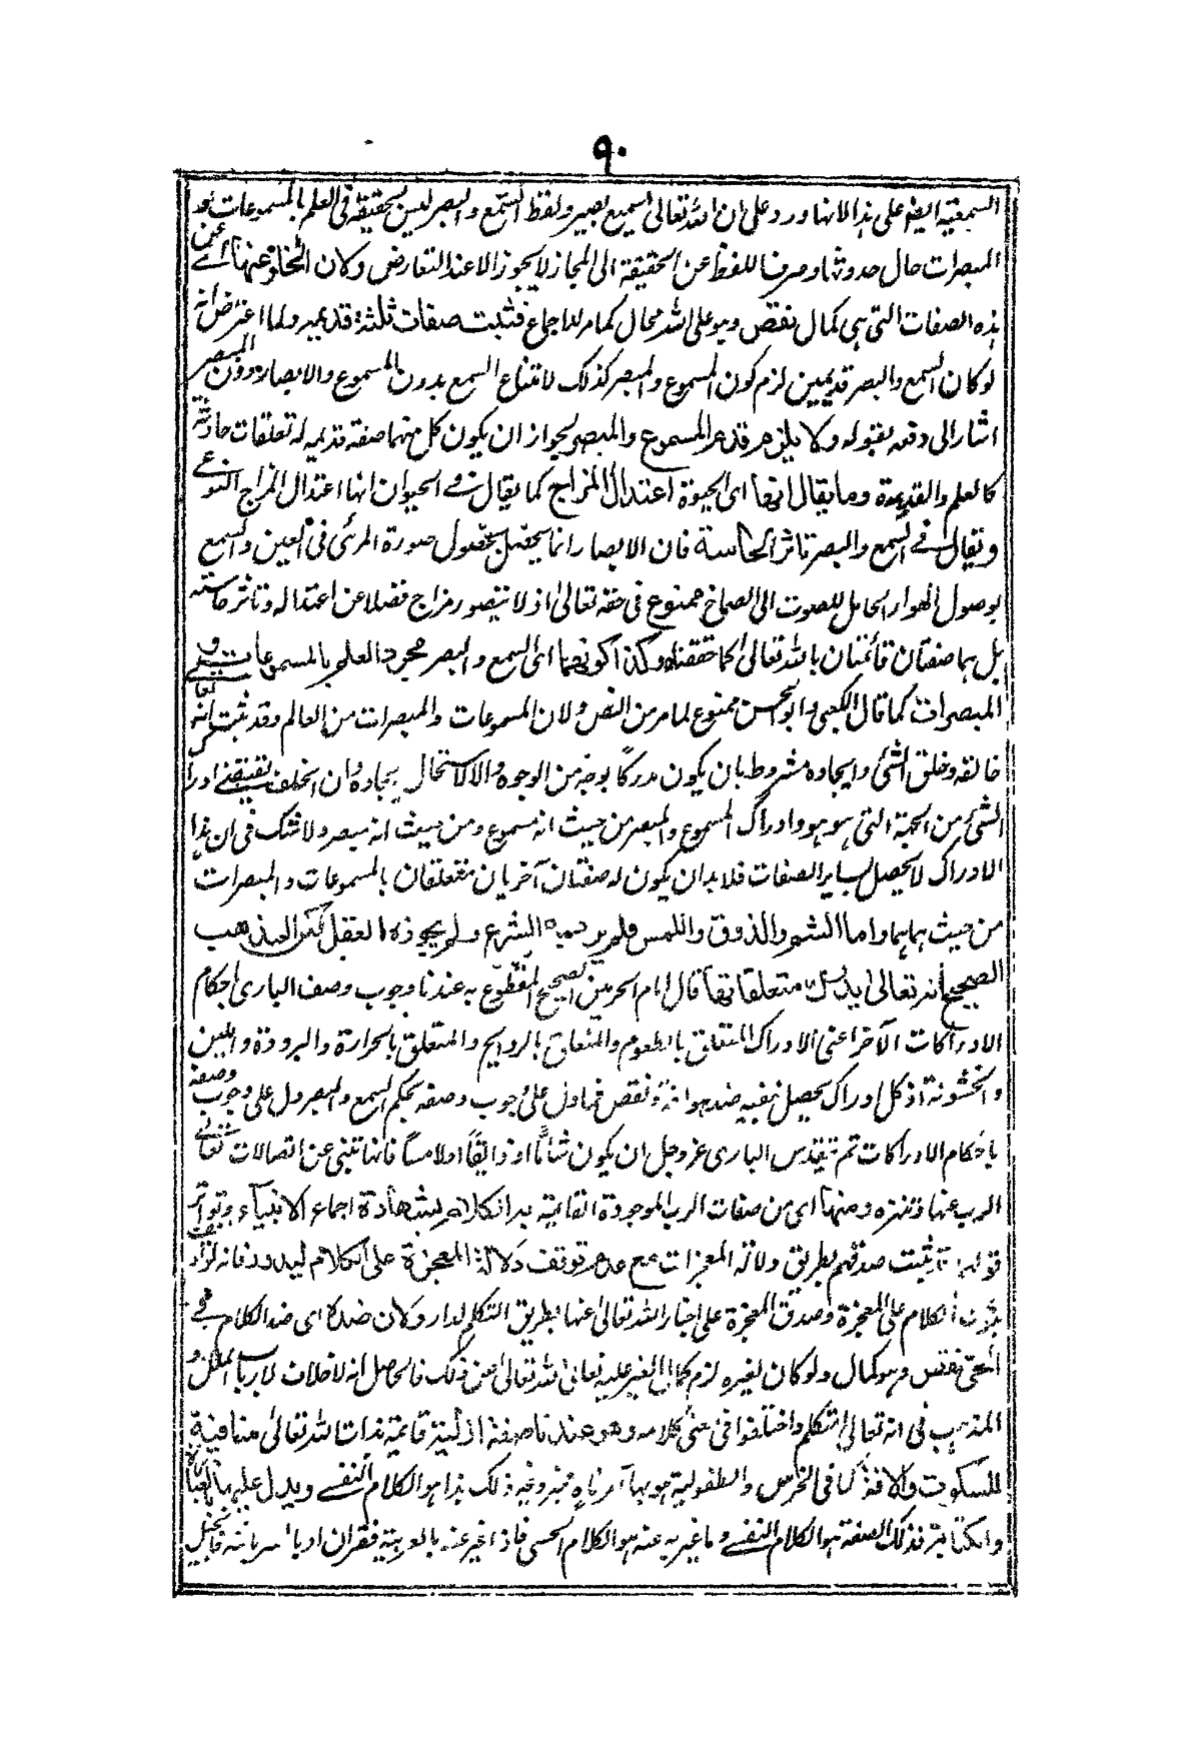 ٩٠
السمعية ايضا على هذا لانها ورد على ان الله تعالى سميع بصير ولفظ السمع والبصر ليس بحقيقة فى العلم بالمسموعات و
المبصرات حال حدوثها وصرف اللفظ عن الحقيقة الى المجاز لا يجوز الا عند التعارض وكان الخلو عنها اى عن
هذه الصفات التى هى كمال نقص وهو على الله محال كما مر للاجماع فثبت صفات ثلثة قديمة ولما اعترض انه
لو كان السمع والبصر قديمين لزم كون المسموع والمبصر كذلك لامتناع السمع بدون المسموع والابصار دون المبصر
اشار الى دفعه بقوله ولا يلزم قدم المسموع والمبصر لجواز ان يكون كل منهما صفة قديمة له تعلقات حادثة
كالعلم والقدرة وما يقال انها اى الحيوة اعتدال المزاج كما يقال فى الحيوان انها اعتدال المزاج النوعى
ويقال فى السمع والبصر تاثر الحاسة فان الابصار انما يحصل بحصول صورة المرئى فى العين والسمع
بوصول الهواء الحامل للصوت الى الصماخ ممنوع فى حقه تعالى اذ لا يتصور مزاج فضلا عن اعتداله وتاثر حاسته
بل هما صفتان قائمتان بالله تعالى كما حققناه وكذا كونهما اى السمع والبصر مجرد العلم بالمسموعات و
المبصرات كما قال الكعبى وابو الحسن ممنوع لما مر من النص ولان المسموعات والمبصرات من العالم وقد ثبت انه تعالى
خالقه وخلق الشئ وايجاده مشروط بان يكون مدركا بوجه من الوجوه والا لاستحال ايجاده وان الخلف يقتضى ادراك
الشئ من الجهة التى هو هو وادراك المسموع والمبصر من حيث انه مسموع ومن حيث انه مبصر ولا شك فى ان هذا
الادراك لا يحصل بساير الصفات فلا بد ان يكون له صفتان آخريان متعلقان بالمسموعات والمبصرات
من حيث هما هما واما الشم والذوق واللمس فلم يرد به الشرع ولم يجوزه العقل لكن المذهب
الصحيح انه تعالى يدرك متعلقاتها قال امام الحرمين الصحيح المقطوع به عندنا وجوب وصف البارى احكام
الادراكات الآخر اعنى الادراك المتعلق بالطعوم والمتعلق بالروايح والمتعلق بالحرارة والبرودة واللين
والخشونة اذ كل ادراك يحصل بنفيه ضد هو آفة ونقص فما دل على وجوب وصفه بحكم السمع والبصر دل على وجوب وصفه
باحكام الادراكات ثم يتقدس البارى عز وجل ان يكون شاما او ذايقا او لامسا فانها تنبئ عن اتصالات تعالى
الرب عنها وتنزه ومنها اى من صفات الرب الموجودة القايمة به الكلام بشهادة اجماع الانبياء وتواتر
قولهم ثبت صدقهم بطريق دلالة المعجزات مع عدم توقف دلالة المعجزة على الكلام ليدور فانه لو توقف
ثبوت الكلام على المعجزة وصدق المعجزة على اخبار الله تعالى عنها بطريق التكلم لدار وكان ضده اى ضد الكلام فى
الحى نقص وهو كمال ولو كان لغيره لزم كمال الغير عليه تعالى الله تعالى عن ذلك فالحاصل انه لا خلاف لارباب الملل و
المذاهب فى انه تعالى متكلم واختلفوا فى معنى كلامه وهو عندنا صفة ازلية قائمة بذات الله تعالى منافية
للسكوت والآفة كما فى الخرس والطفولية هو بها آمر ناه مخبر وغير ذلك هذا هو الكلام النفسى ويدل عليها بالعبارة
والكتابة فذلك الصفة هو الكلام النفسى وما عبر به عنه هو الكلام الحسى فاذا عبر عنه بالعربية فقران او بالسريانية فانجيل